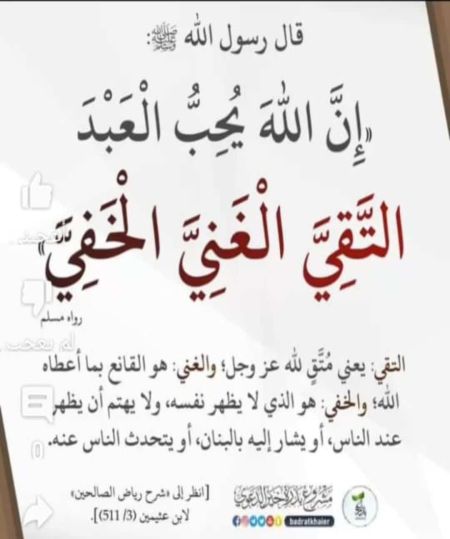 قال رسول الله ﷺ:
«إِنَّ اللهَ يُحِبُّ الْعَبْدَ
التَّقِيَّ الْغَنِيَّ الْخَفِيَّ»
رواه مسلم
لم يعجب
التقي: يعني مُتَّقٍ لله عز وجل؛ والغني: هو القانع بما أعطاه
الله؛ والخفي: هو الذي لا يظهر نفسه، ولا يهتم أن يظهر
عند الناس، أو يشار إليه بالبنان، أو يتحدث الناس عنه.
0
[انظر إلى «شرح رياض الصالحين»
لابن عثيمين (3/ 511)].
badratkhaier